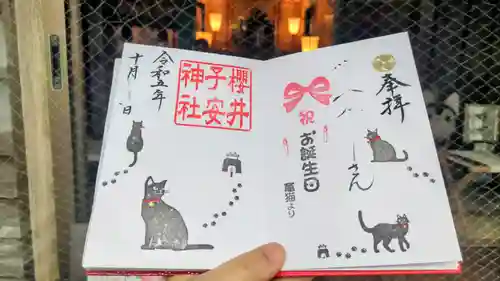 奉拝
さん
祝
お誕生日
猫より
櫻井
子安
神社
令和五年
十月 日